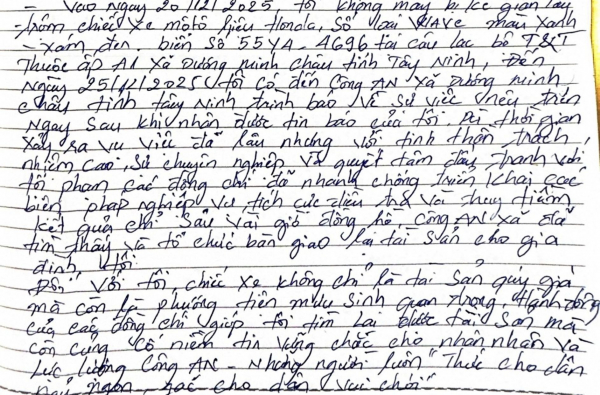 - Vào ngày 20/12/2025, tôi không may bị kẻ gian lấy
trộm chiếc xe môtô hiệu Honda, số loại WAVE màu xanh
- xám đen. biển số 55YA-4696 tại câu lạc bộ T&T
Thuộc ấp A1 xã Dương minh châu tỉnh Tây Ninh, Đến
Ngày 25/12/2025 tôi có đến Công AN xã Dương minh
châu tỉnh tây Ninh trình báo về sự việc nêu trên
Ngay sau khi nhận được tin báo của tôi. Dù thời gian
xảy ra vụ việc đã lâu nhưng với tinh thần trách
nhiệm cao, sự chuyên nghiệp và quyết tâm đấu tranh với
tội phạm các đồng chí đã nhanh chóng triển khai các
biện pháp nghiệp vụ tích cực điều tra và truy tìm
kết quả chỉ sau vài giờ đồng hồ Công AN xã đã
tìm thấy và tổ chức bàn giao lại tài sản cho gia
đình tôi.
Đối với tôi, chiếc xe không chỉ là tài sản quý giá
mà còn là phương tiện mưu sinh quan trọng. Hành động
của các đồng chí giúp tôi tìm lại được tài sản mà
còn củng cố niềm tin vững chắc cho nhân nhân và
lực lượng Công AN - Những người luôn "Thức cho dân
ngủ ngon, gác cho dân vui chơi"